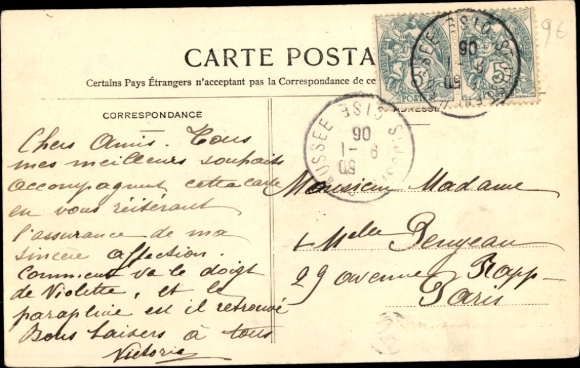 CARTE POSTA
Certains Pays Étrangers n'acceptent pas la Correspondance de ce
CORRESPONDANCE
ADRESSE
96
Chers Amis. Tous
mes meilleurs souhaits
accompagnent cette carte
en vous réitérant
l'assurance de ma
sincère affection.
Comment va le doigt
de Violette, et le
parapluie est il retrouvé
Bons baisers à tous
Victoria
Monsieur Madame
+ Melle Penyeau
29 avenue Rapp
Paris
CHAUSSEE
OISE
9 - 1
06
POSTES
5